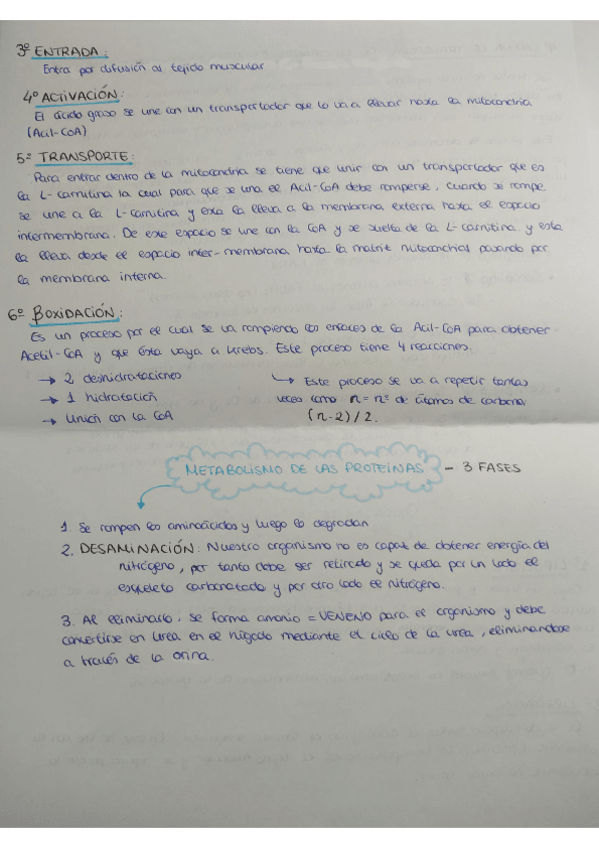 3º ENTRADA:
Entra por difusión al tejido muscular
4º ACTIVACIÓN:
El ácido graso se une con un transportador que lo va a llevar hasta la mitocondria
(Acil-CoA)
5º TRANSPORTE:
Para entrar dentro de la mitocondria se tiene que unir con un transportador que es
la L-carnitina la cual para que se una el Acil-CoA debe romperse, cuando se rompe
se une a la L-carnitina y esta la lleva a la membrana externa hasta el espacio
intermembrana. De este espacio se une con la CoA y se suelta de la L-carnitina y esta
la lleva desde el espacio inter-membrana hasta la matriz mitocondrial pasando por
la membrana interna.
6º βOXIDACIÓN:
Es un proceso por el cual se va rompiendo los enlaces de la Acil-CoA para obtener
Acetil-CoA y que ésta vaya a krebs. Este proceso tiene 4 reacciones.
→ 2 deshidrataciones
→ 1 hidratación
→ Unión con la CoA
↳ Este proceso se va a repetir tantas
veces como n = nº de átomos de carbono
(n-2)/2.
METABOLISMO DE LAS PROTEÍNAS - 3 FASES
1. Se rompen los aminoácidos y luego lo degradan
2. DESAMINACIÓN: Nuestro organismo no es capaz de obtener energía del
nitrógeno, por tanto debe ser retirado y se queda por un lado el
esqueleto carbonatado y por otro lado el nitrógeno.
3. Al eliminarlo, se forma amonio = VENENO para el organismo y debe
convertirse en urea en el hígado mediante el ciclo de la urea, eliminandose
a través de la orina.